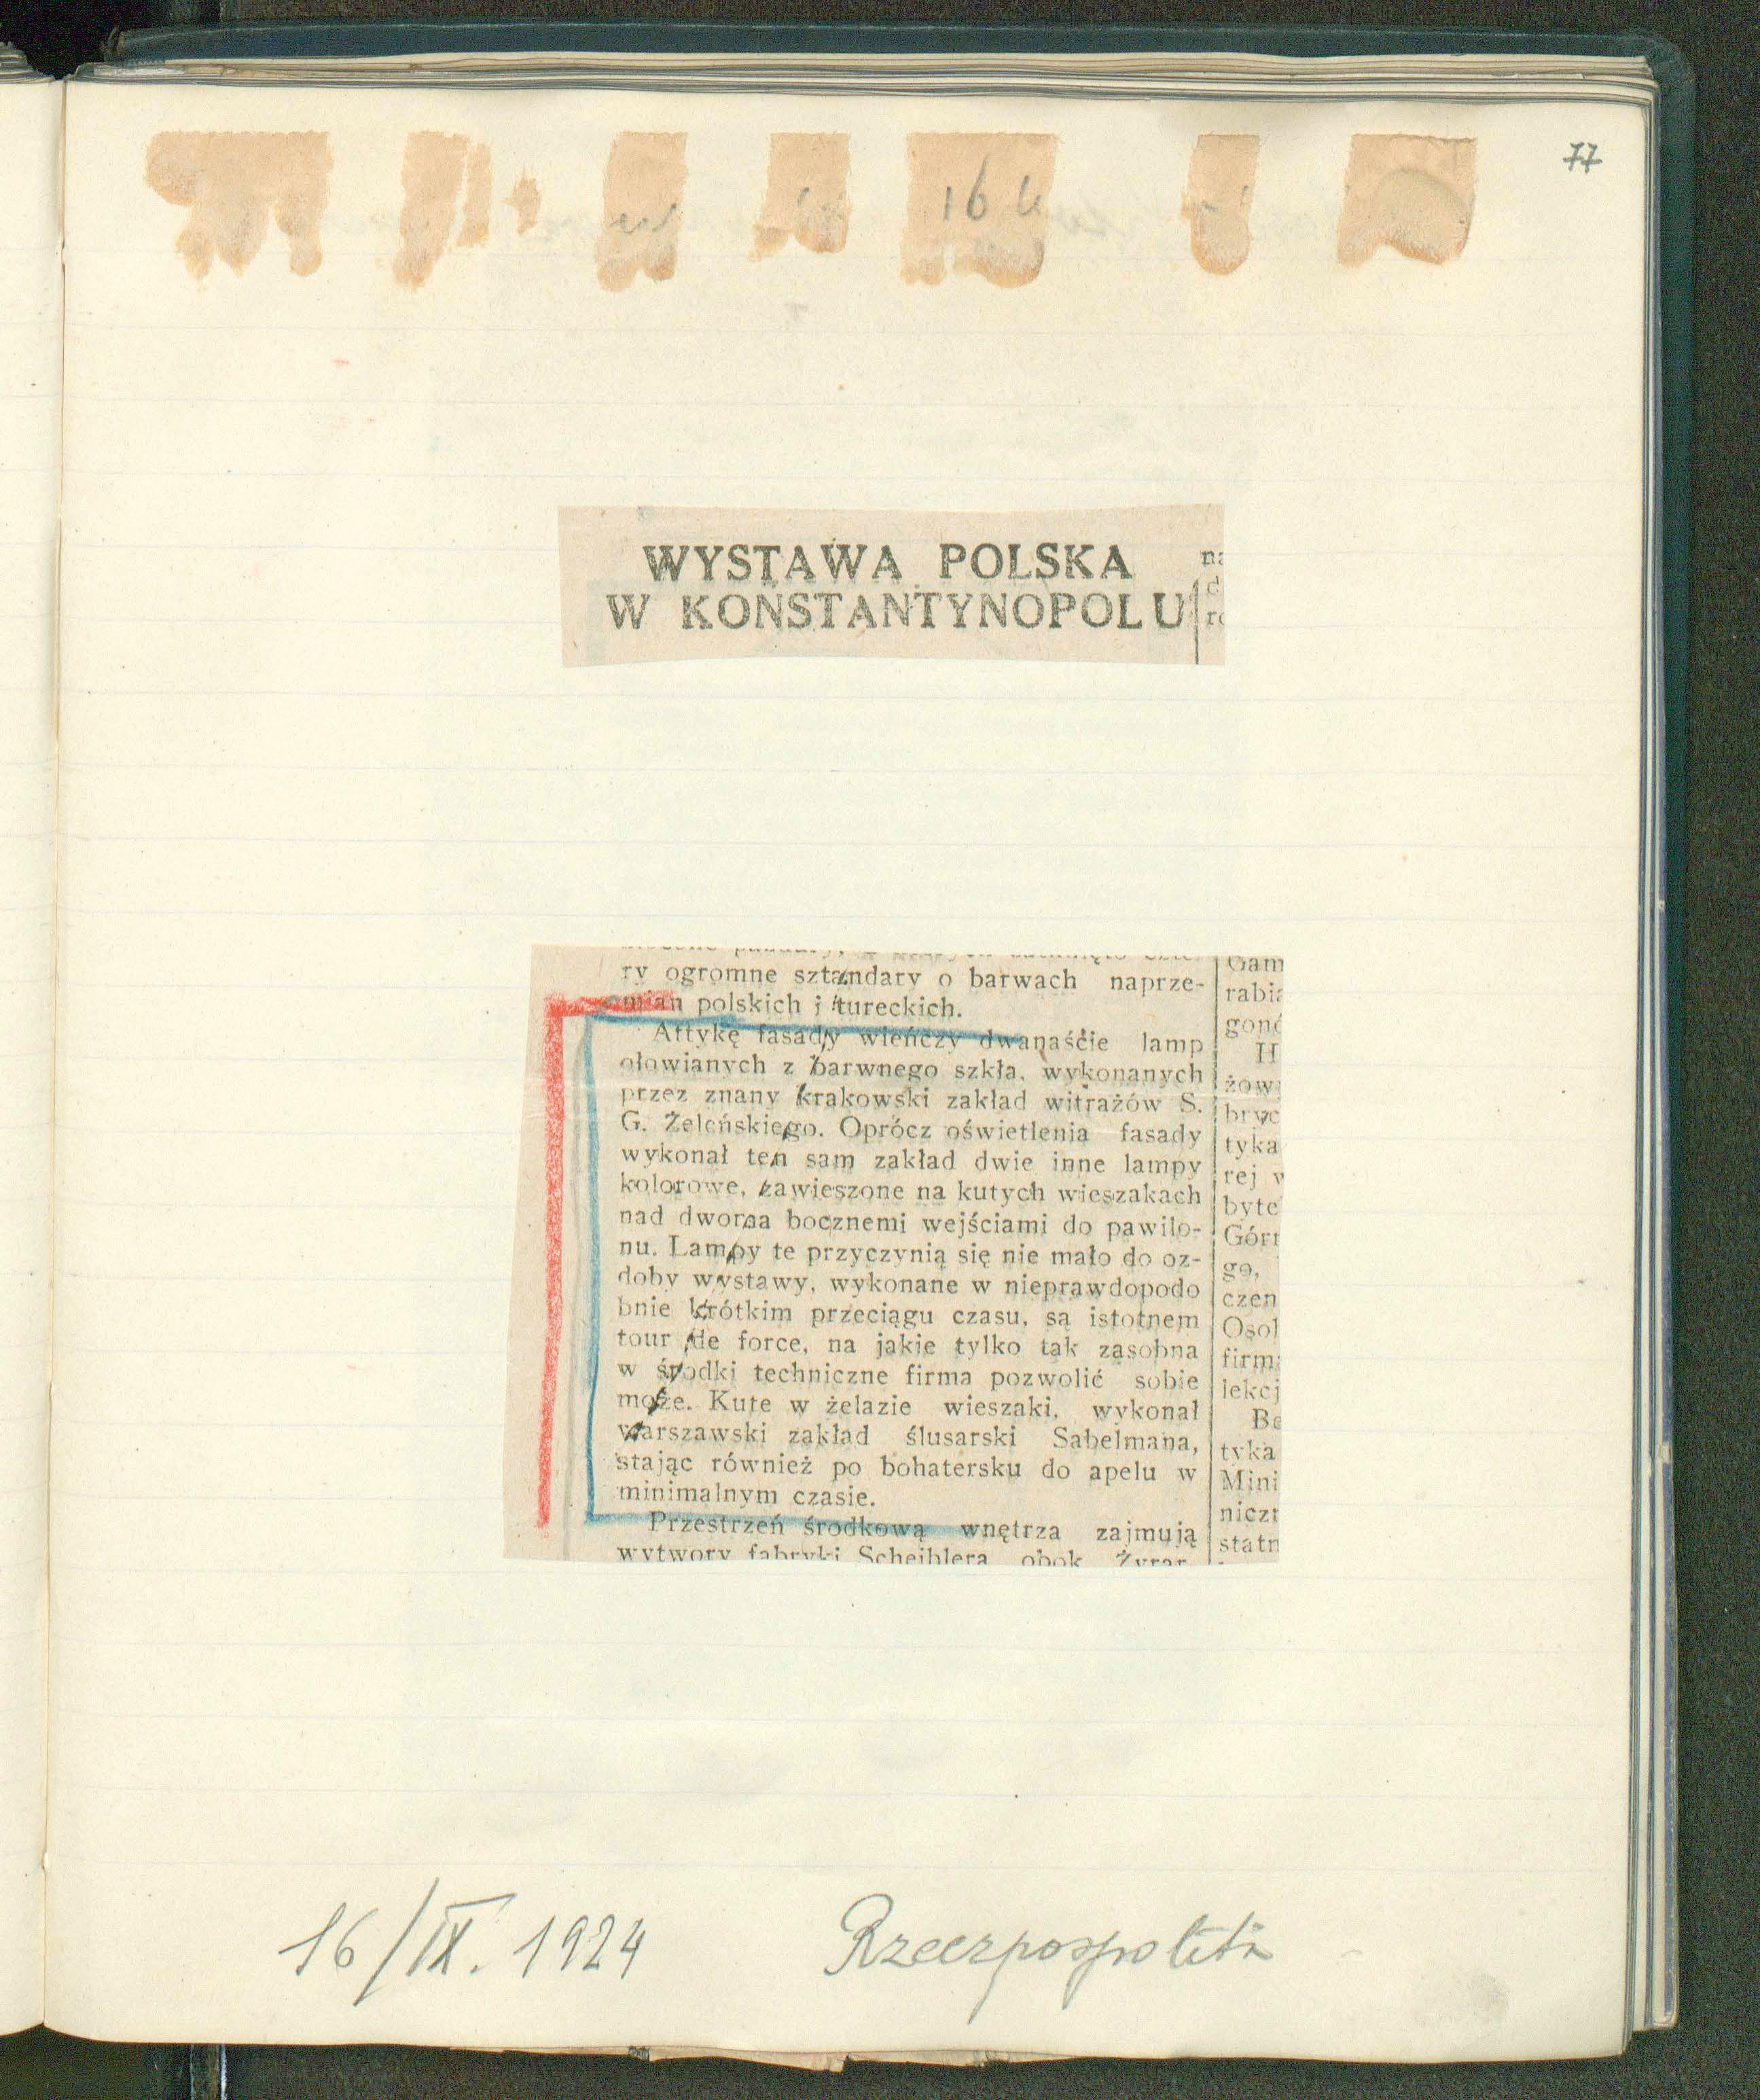 77
16
WYSTAWA POLSKA
W KONSTANTYNOPOLU
ry ogromne sztandary o barwach naprze-
mian polskich i tureckich.
Attykę fasady wieńczy dwanaście lamp
ołowianych z barwnego szkła, wykonanych
przez znany krakowski zakład witrażów S.
G. Żeleńskiego. Oprócz oświetlenia fasady
wykonał ten sam zakład dwie inne lampy
kolorowe, zawieszone na kutych wieszakach
nad dwoma bocznemi wejściami do pawilo-
nu. Lampy te przyczynią się nie mało do oz-
doby wystawy, wykonane w nieprawdopodo
bnie krótkim przeciągu czasu, są istotnem
tour de force, na jakie tylko tak zasobna
w środki techniczne firma pozwolić sobie
może. Kute w żelazie wieszaki, wykonał
warszawski zakład ślusarski Sabelmana,
stając również po bohatersku do apelu w
minimalnym czasie.
Przestrzeń środkową wnętrza zajmują
wytwory fabryki Scheiblera obok Żyrar-
Gam
rabia
gonć
H
żow
bryc
tyka
rej w
byte
Górn
go,
czen
Osol
firm
lekcj
Be
tyka
Mini
niczn
statn
16/IX. 1924
Rzeczpospolita